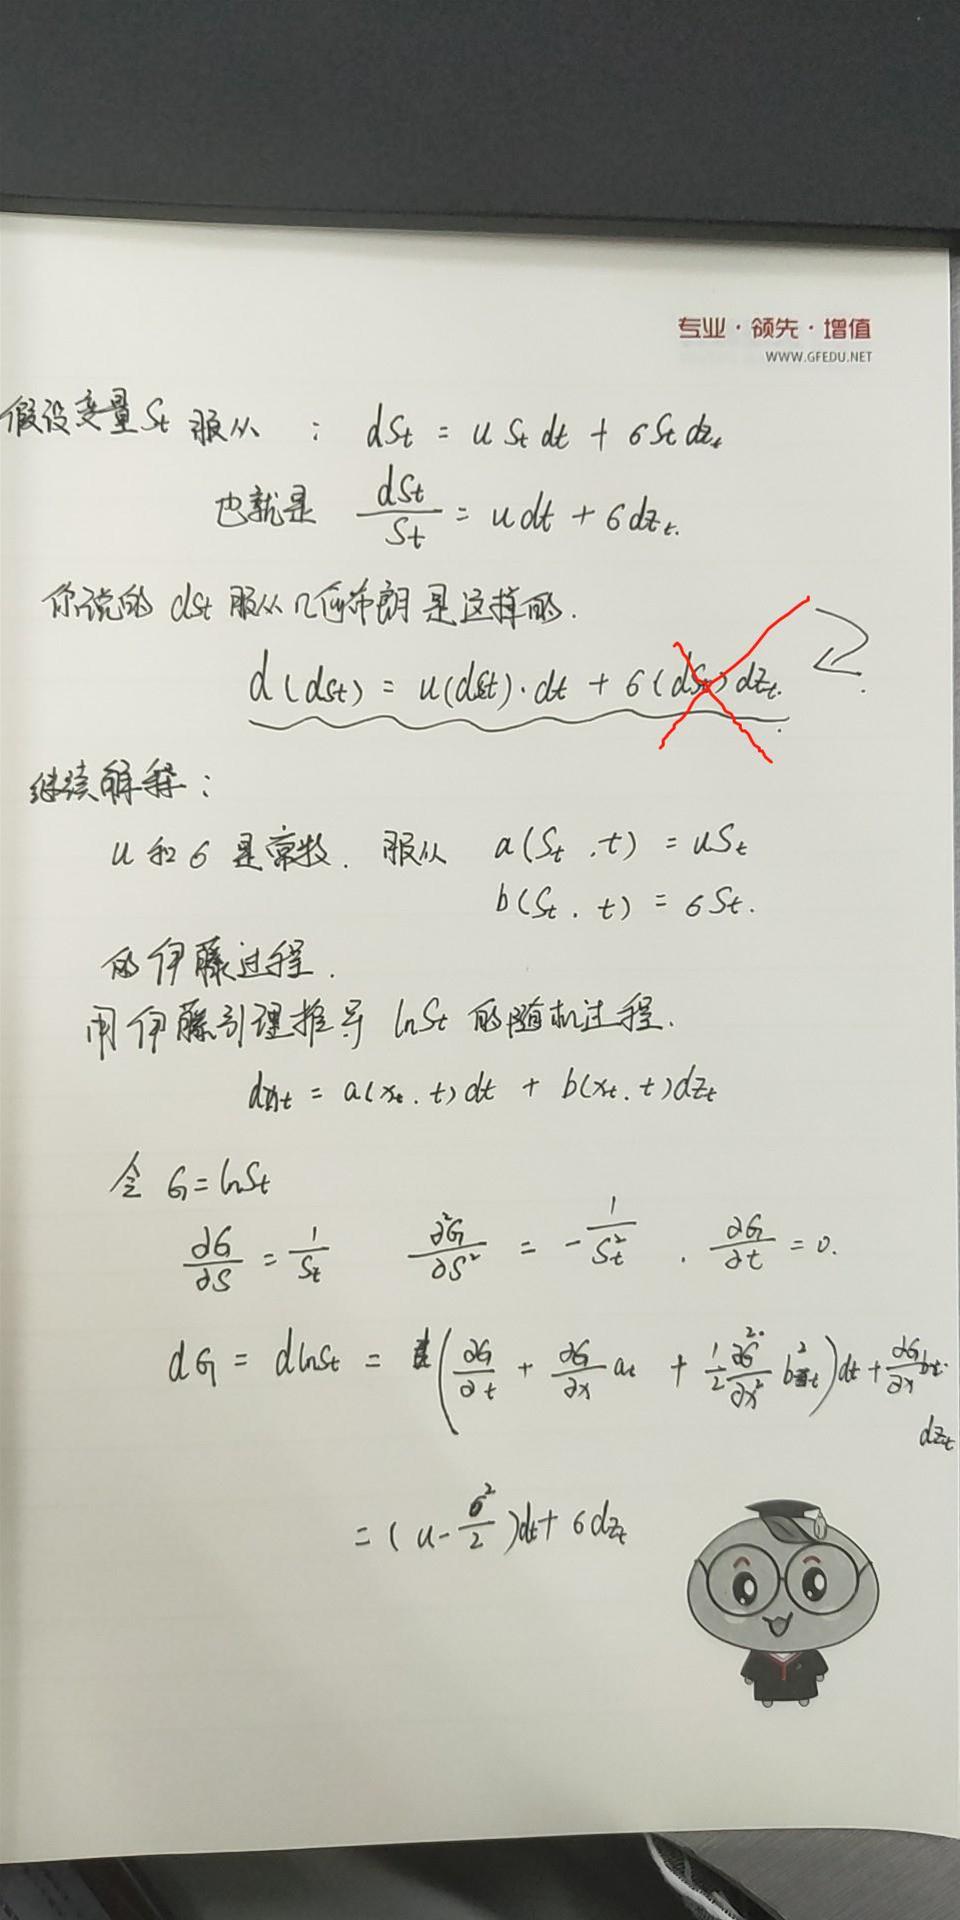 专业·领先·增值
WWW.GFEDU.NET
假设变量St 服从 : dSt = u St dt + 6 St dzt
也就是 dSt/St = u dt + 6 dzt.
你说的 dSt 服从几何布朗是这样的.
d(dSt) = u(dSt)·dt + 6(dSt)dzt.
继续解释:
u 和 6 是常数. 服从 a(St,t) = uSt
b(St,t) = 6St.
的伊藤过程.
用伊藤引理推导 lnSt 的随机过程.
dxt = a(xt,t)dt + b(xt,t)dzt
令 G = lnSt
∂G/∂S = 1/St ∂²G/∂S² = -1/St² , ∂G/∂t = 0.
dG = dlnSt = (∂G/∂t + ∂G/∂x at + 1/2 ∂²G/∂x² bt²)dt + ∂G/∂x bt
dzt
= (u - 6²/2)dt + 6dzt